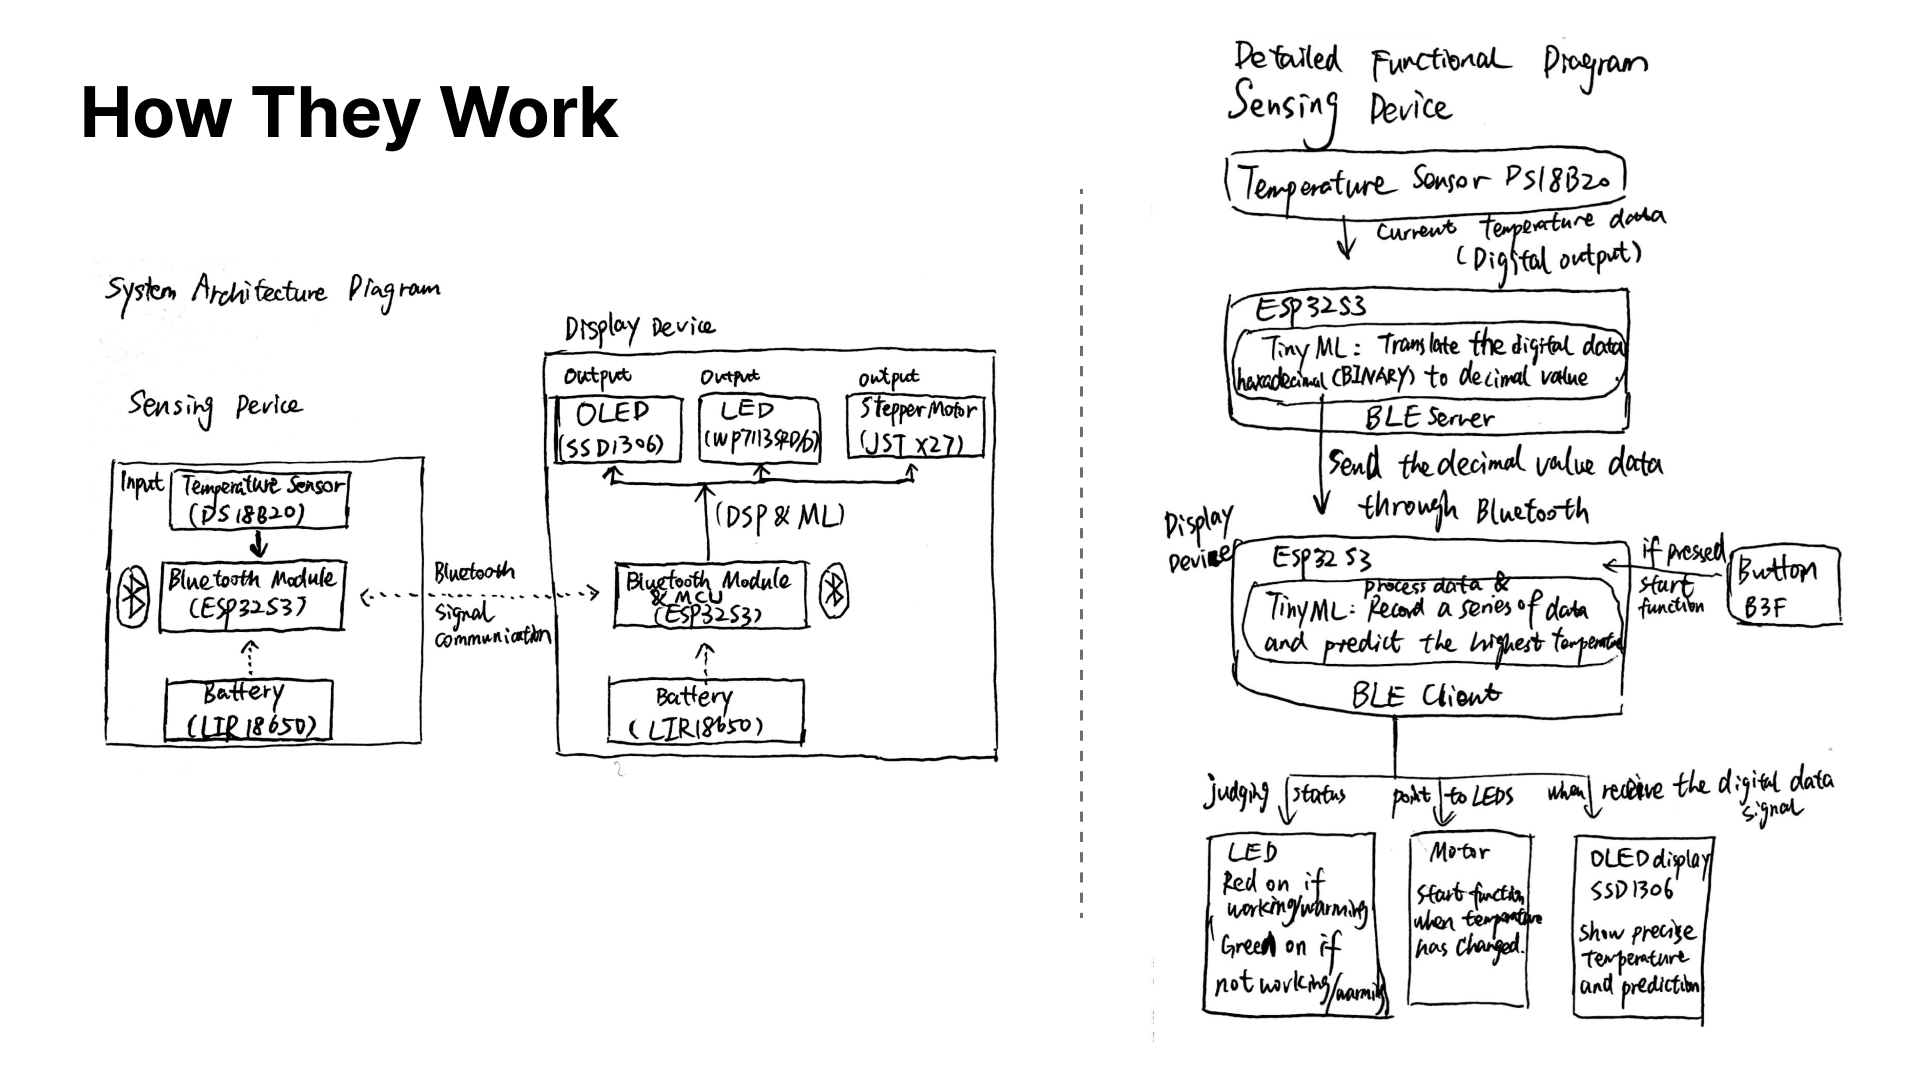 How They Work
System Architecture Diagram
Sensing Device
Input
Temperature Sensor
(DS18B20)
Bluetooth Module
(ESP32S3)
Battery
(LIR18650)
Bluetooth
signal
communication
Display Device
Output
OLED
(SSD1306)
Output
LED
(WP7113SRD/D)
output
Stepper Motor
(JST X27)
(DSP & ML)
Bluetooth Module
& MCU
(ESP32S3)
Battery
(LIR18650)
Detailed Functional Diagram
Sensing Device
Temperature Sensor DS18B20
Current Temperature data
(Digital output)
ESP32S3
TinyML: Translate the digital data
hexadecimal (BINARY) to decimal value
BLE Server
Send the decimal value data
through Bluetooth
Display
Device
ESP32S3
process data &
TinyML: Record a series of data
and predict the highest temperature
BLE Client
if pressed
start
function
Button
B3F
judging status
point to LEDS
when receive the digital data
signal
LED
Red on if
working/warming
Green on if
not working/warming
Motor
Start function
when temperature
has changed.
OLED display
SSD1306
show precise
temperature
and prediction